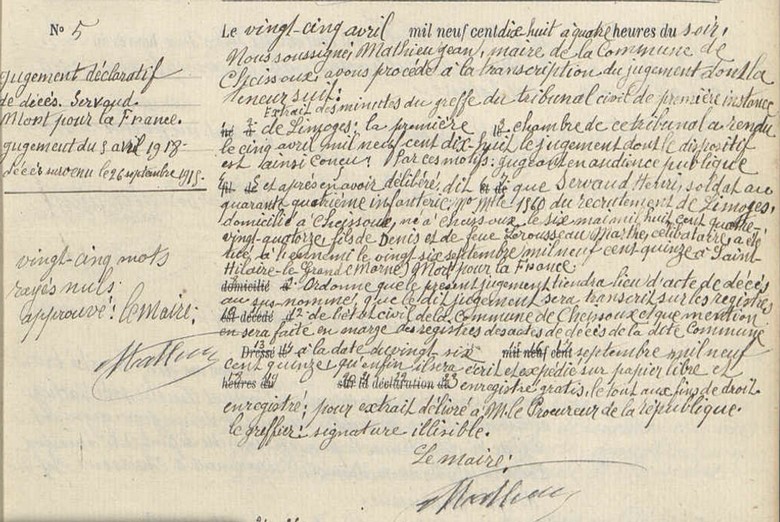 N° 5
Jugement déclaratif
de décès. Servaud.
Mort pour la France.
jugement du 5 avril 1918-
décès survenu le 26 septembre 1915-
vingt-cinq mots
rayés nuls:
approuvé! le maire:
Mathieu
Le vingt-cinq avril mil neuf cent dix huit à quatre heures du soir,
Nous soussigné, Mathieu Jean, maire de la Commune de
Cheissoux, avons procédé à la transcription du jugement dont la
teneur suit:
Extrait des minutes du greffe du tribunal civil de première instance
de Limoges: la première chambre de ce tribunal a rendu
le cinq avril mil neuf cent dix-huit le jugement dont le dispositif
est ainsi conçu: Par ces motifs: jugeant en audience publique
et après en avoir délibéré, dit que Servaud Henri, soldat au
quarante quatrième infanterie, No Mle 1560 du recrutement de Limoges,
domicilié à Cheissoux, né à Cheissoux, le six mai mil huit cent quatre-
vingt-quatorze fils de Denis et de feue Marthe, célibataire, a été
tué, à l'ennemi le vingt-six septembre mil neuf cent quinze à Saint-
Hilaire-le-Grand (Marne) Mort pour la France
domicilié Ordonne que le présent jugement tiendra lieu d'acte de décès
au sus-nommé, que le dit jugement sera transcrit sur les registres
est décédé de l'état civil de la Commune de Cheissoux et que mention
en sera faite en marge des registres des actes de décès de la dite Commune
Dressé à la date du vingt six mil neuf cent septembre mil neuf
cent quinze, qu'enfin il sera écrit et expédié sur papier libre et
heures du sur la déclaration de enregistré gratis, le tout aux fins de droit.
enregistré; pour extrait délivré à M. le Procureur de la république.
le greffier: signature illisible.
Le maire:
Mathieu